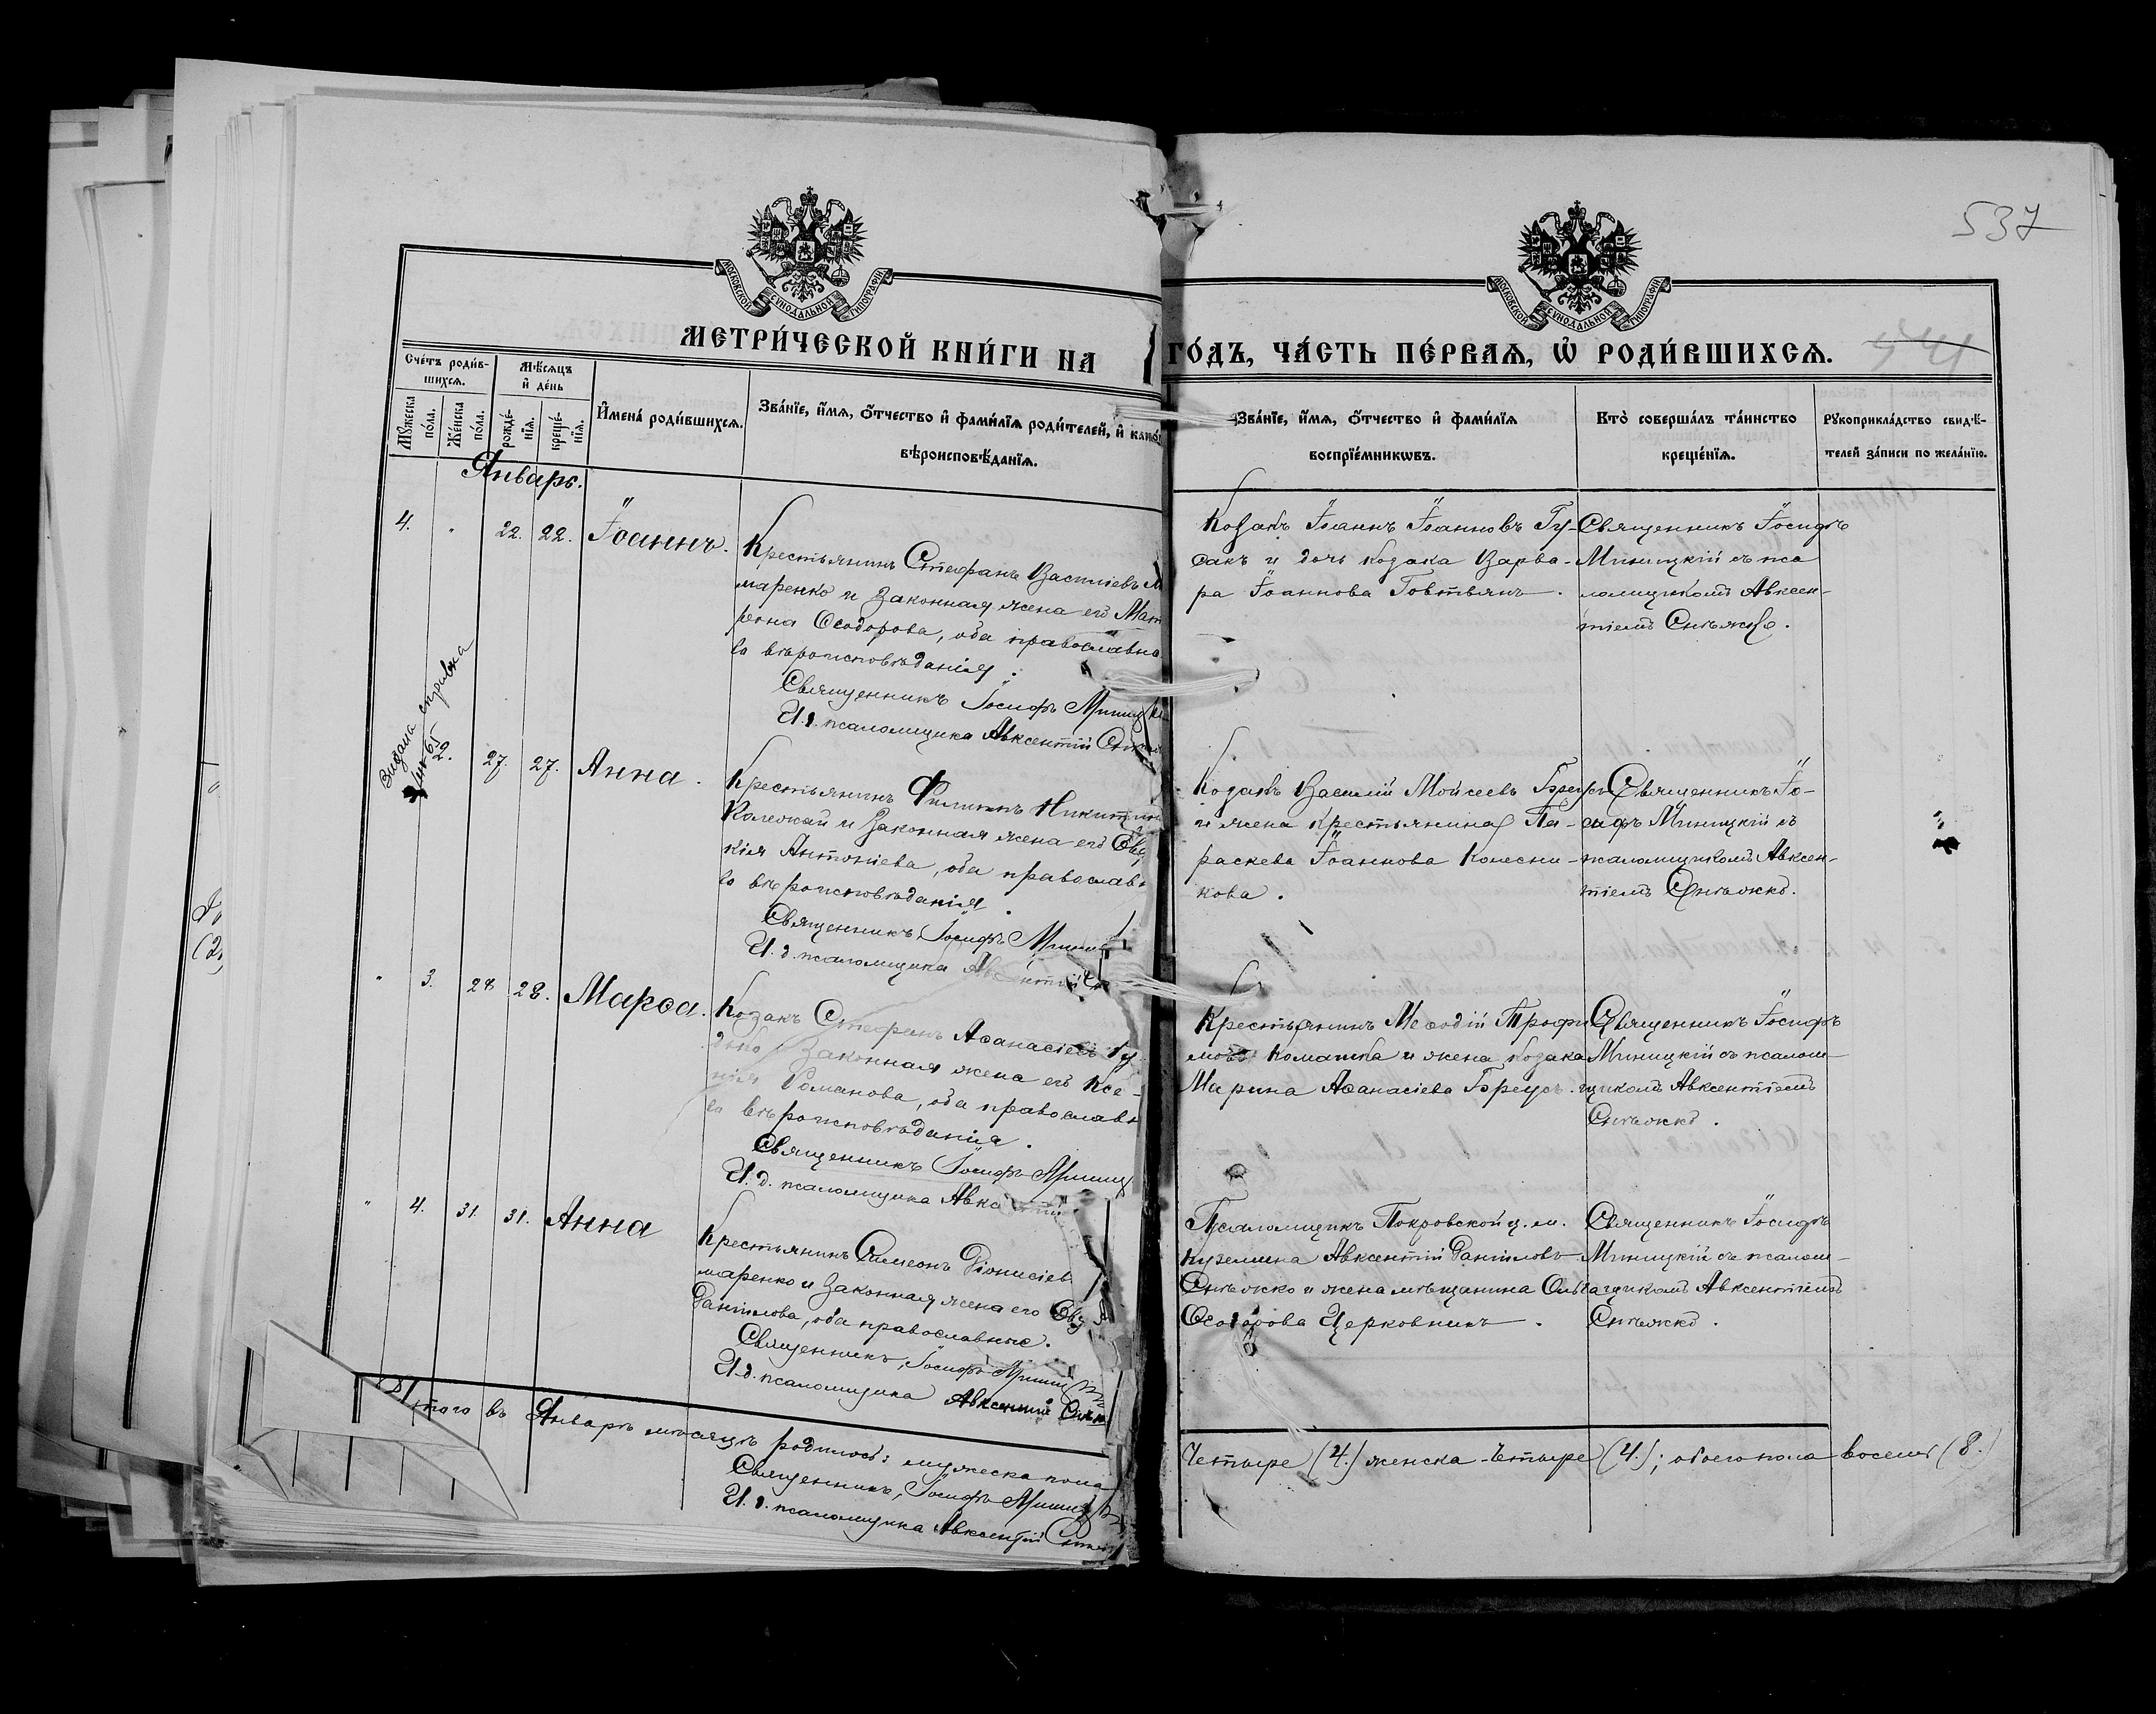 537
541
МОСКОВСКОЙ СѴНОДАЛЬНОЙ ТИПОГРАФІИ
МОСКОВСКОЙ СѴНОДАЛЬНОЙ ТИПОГРАФІИ
МЕТРИ́ЧЕСКОЙ КНИ́ГИ НА 1
ГО́ДЪ, ЧА́СТЬ ПЕ́РВАѦ, Ѡ҆ РОДИ́ВШИХСѦ.
Сче́тъ роди́в-
шихсѧ.
Мꙋ́жеска по́ла.
Же́нска по́ла.
Мѣ́сѧцъ
и҆ де́нь
рожде́-
нїѧ.
креще́-
нїѧ.
И҆мена̀ роди́вшихсѧ.
Зва́нїе, и҆́мѧ, ѻ҆́тчество и҆ фами́лїѧ роди́телей, и҆ како́
вѣроисповѣ́данїѧ.
Зва́нїе, и҆́мѧ, ѻ҆́тчество и҆ фами́лїѧ
воспрїе́мникѡвъ.
Кто̀ соверша́лъ та́инство
креще́нїѧ.
Рꙋкоприкла́дство свидѣ́-
телей за́писи по жела́нїю.
Январь.
4. " 22. 22. Іоаннъ.
Крестьянинъ Стефанъ Василіевъ
маренко и законная жена его Мат
рона Ѳеодорова, оба православна
го вѣроисповѣданія.
Священникъ Іосифъ Миницкі
И. д. псаломщика Авксентій Снѣж
Козакъ Іоаннъ Іоанновъ Гу-
сакъ и дочь козака Варва-
ра Іоаннова Говтвянъ.
Священникъ Іосифъ
Миницкій съ пса
ломщикомъ Авксен-
тіемъ Снѣжко.
Видана справка
65
2. 27. 27. Анна.
Крестьянинъ Филиппъ Никитинъ
и законная жена его Евд
кія Антоніева, оба православн
го вѣроисповѣданія.
Священникъ Іосифъ Миниц
И. д. псаломщика Авксентій Сн
Козакъ Василій Мойсеевъ Бреусъ
и жена крестьянина Па-
раскева Іоаннова Колесни-
кова.
Священникъ Іо-
сифъ Миницкій съ
псаломщикомъ Авксен-
тіемъ Снѣжко.
" 3. 28 28. Марѳа.
Козакъ Стефанъ Аѳанасіевъ Гу
законная жена его Ксе-
нія Романова, оба православн
го вѣроисповѣданія.
Священникъ Іосифъ Миниц
И. д. псаломщика Авксентій
Крестьянинъ Меѳодій Трофи
мовъ и жена козака
Марина Аѳанасіева Бреусъ.
Священникъ Іосифъ
Миницкій съ псалом-
щикомъ Авксентіемъ
Снѣжко.
" 4. 31. 31. Анна
Крестьянинъ Симеонъ Діонисіев
маренко и законная жена его Евд
Даніилова, оба православные.
Священникъ Іосифъ Миниц
И. д. псаломщика Авксентій Снѣж
Псаломщикъ Покровской ц. м.
Куземина Авксентій Даніиловъ
Снѣжко и жена мѣщанина Ольга
Ѳеодорова Церковникъ.
Священникъ Іосифъ
Миницкій съ псалом-
щикомъ Авксентіемъ
Снѣжко.
Итого въ Январѣ мѣсяцѣ родилось: мужеска пола
Четыре (4.) женска - Четыре (4.); обоего пола восемь (8.)
Священникъ, Іосифъ Миниц
И. д. псаломщика Авксентій Снѣж